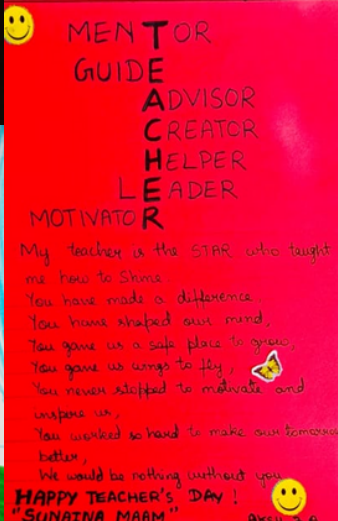 MENTOR
GUIDE
ADVISOR
CREATOR
HELPER
LEADER
MOTIVATOR
My teacher is the STAR who taught
me how to Shine.
You have made a difference.
You have shaped our mind,
You gave us a safe place to grow,
You gave us wings to fly,
You never stopped to motivate and
inspire us,
You worked so hard to make our tomorrow
better,
We would be nothing without you
HAPPY TEACHER'S DAY!
"SUNAINA MAAM"